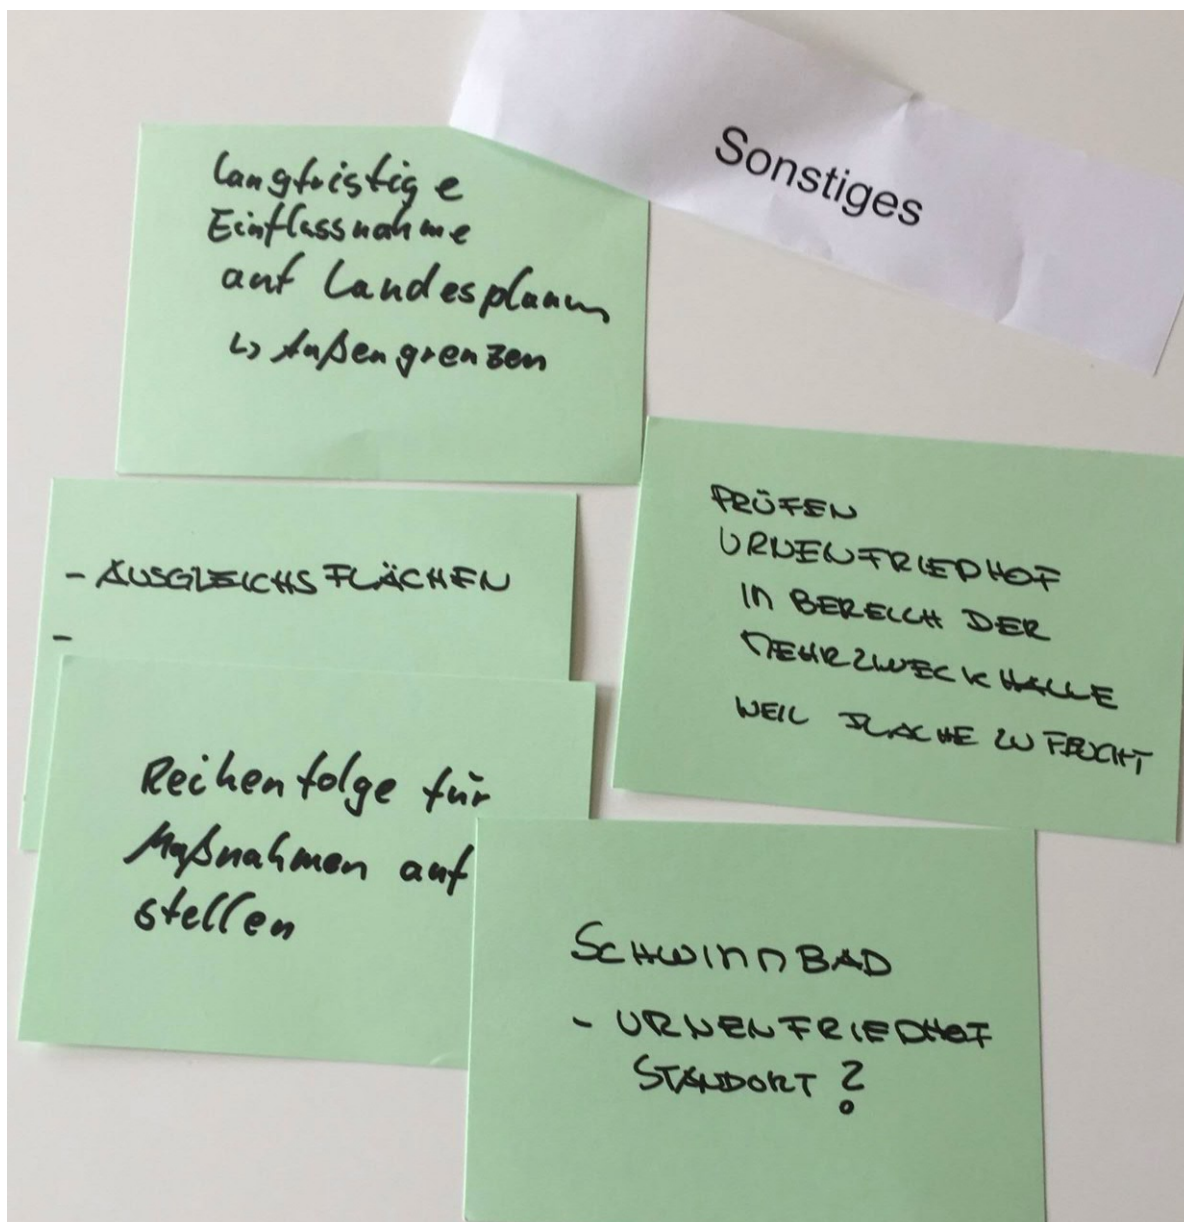 Sonstiges
langfristige
Einflussnahme
auf Landesplanung
↳ Außengrenzen
- AUSGLEICHSFLÄCHEN
-
PRÜFEN
URNENFRIEDHOF
IM BEREICH DER
MEHRZWECKHALLE
WEIL FLÄCHE ZU FEUCHT
Reihenfolge für
Maßnahmen auf
stellen
SCHWIMMBAD
- URNENFRIEDHOF
STANDORT ?